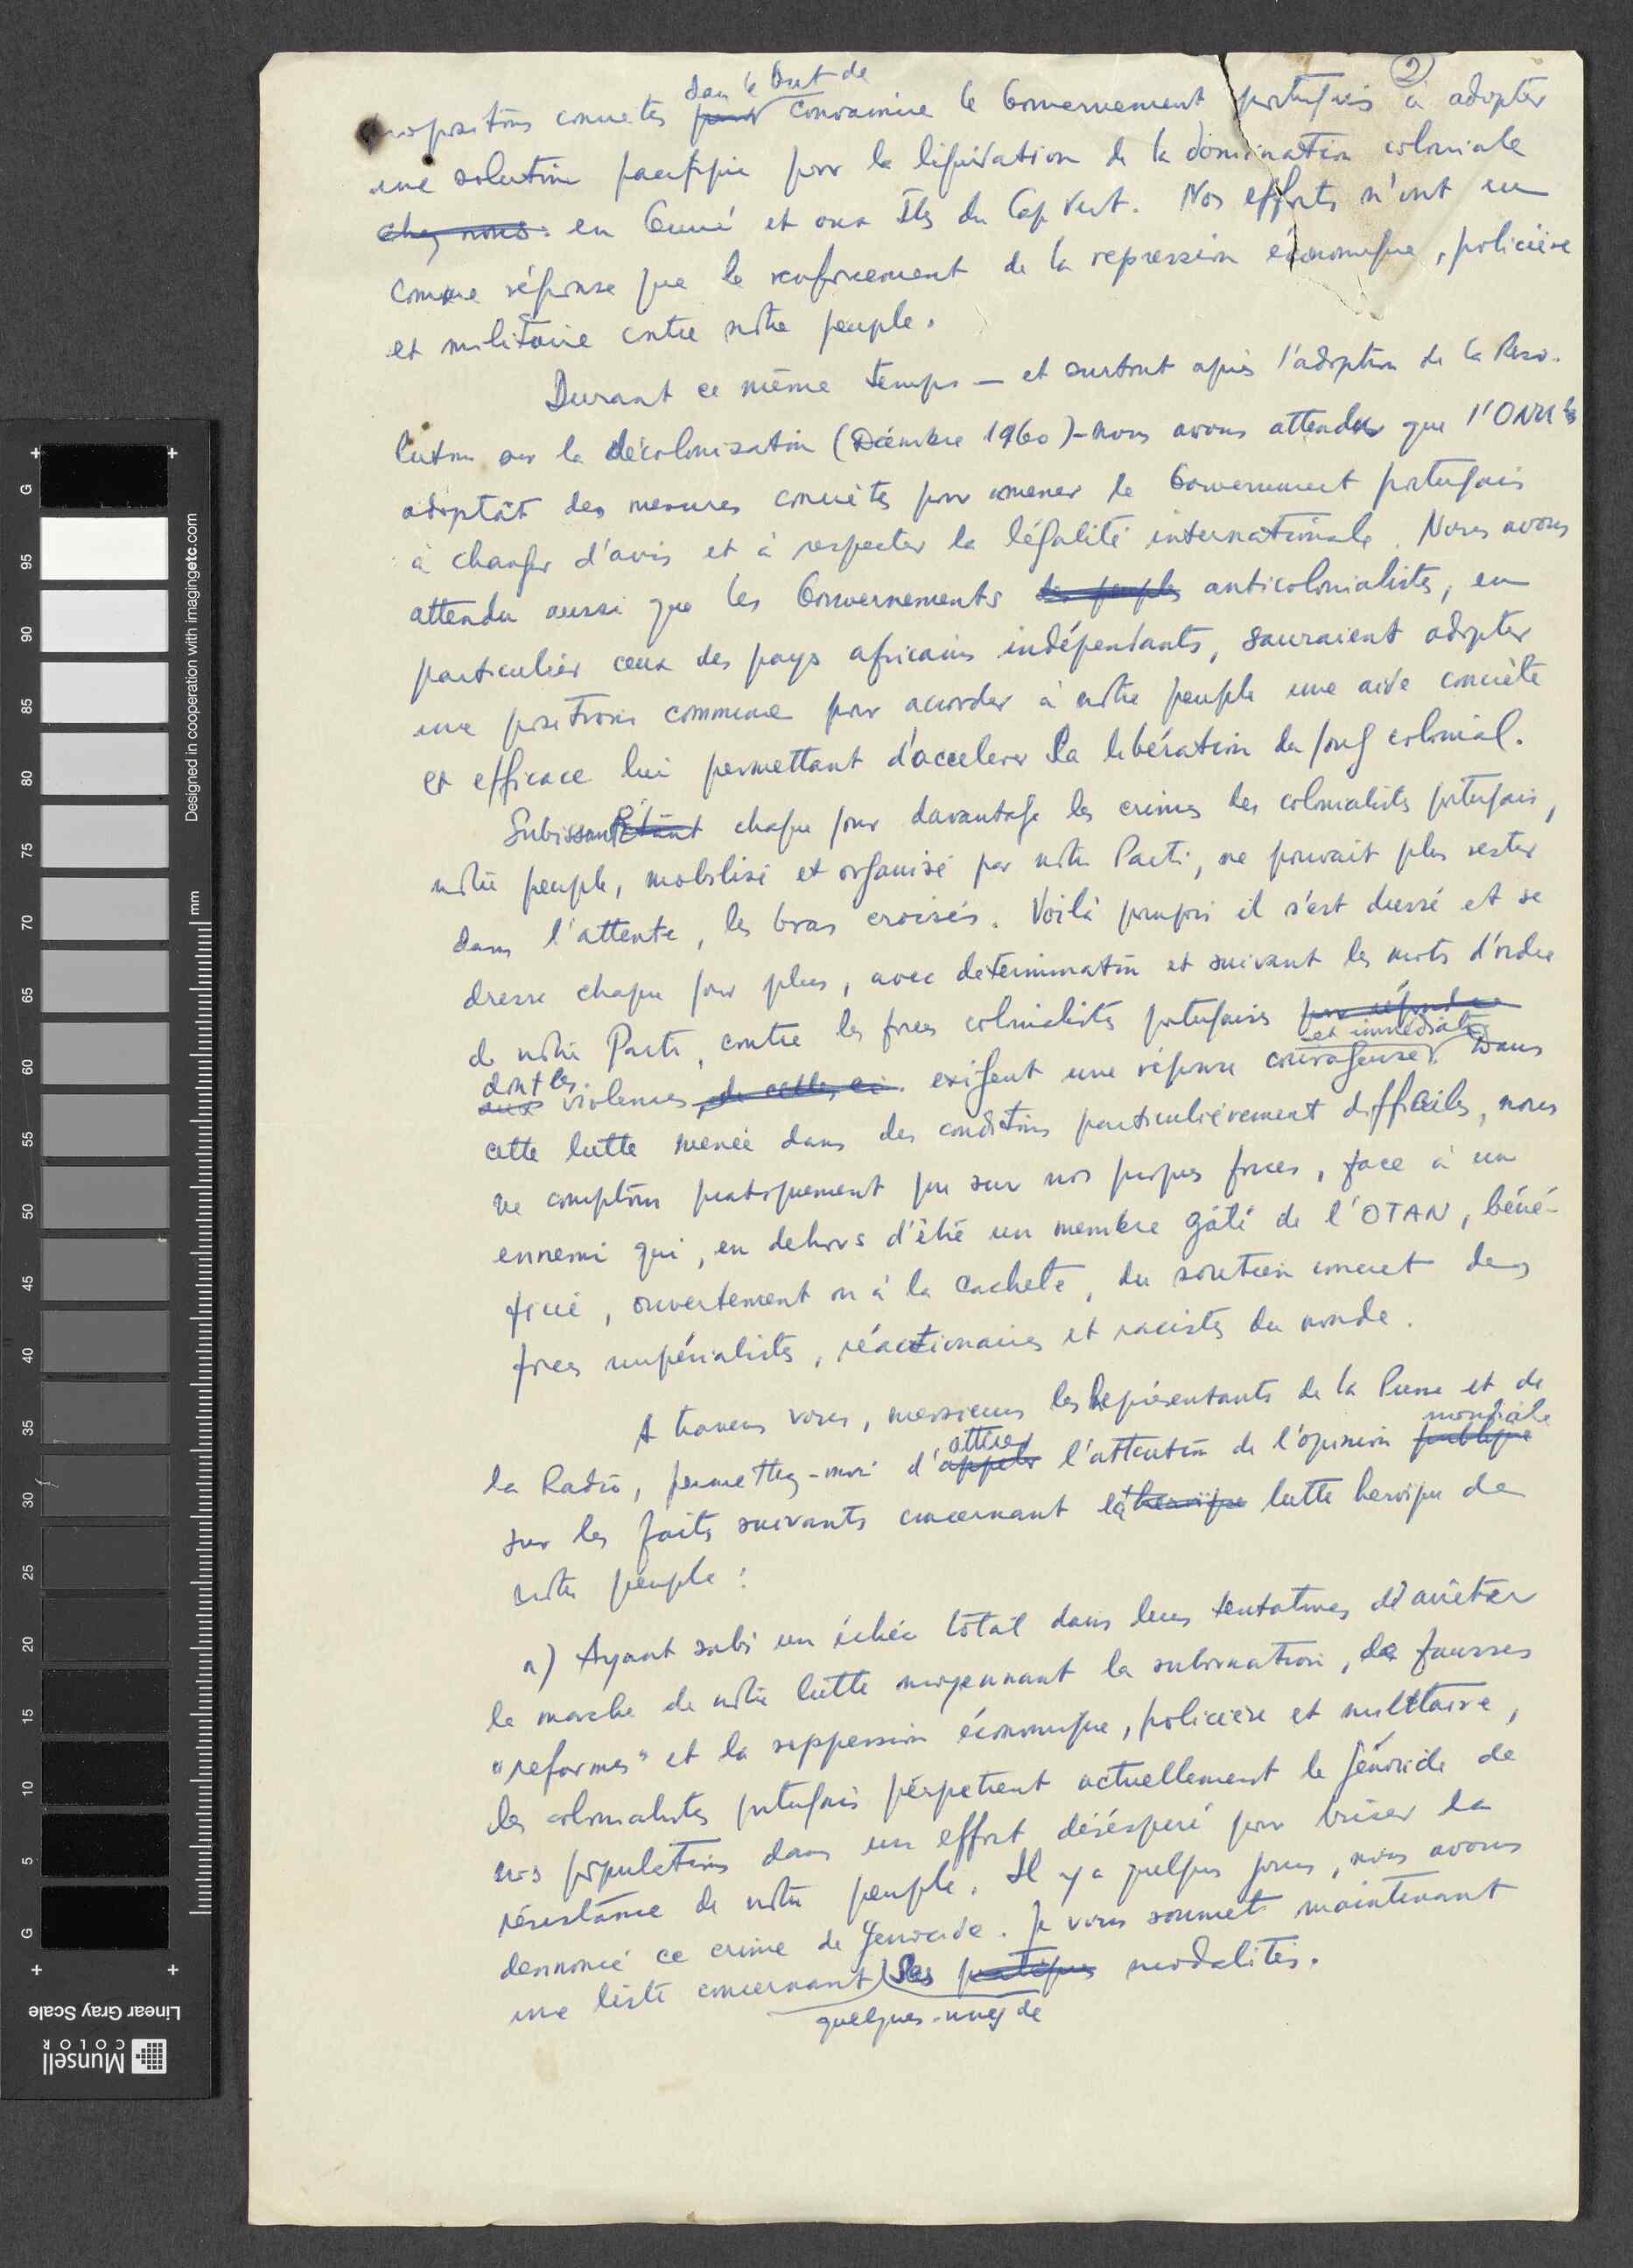 2
dans le but de
propositions concrètes pour convaincre le Gouvernement portugais à adopter
une solution pacifique pour la liquidation de la domination coloniale
chez nous. en Guiné et aux Iles du Cap Vert. Nos efforts n'ont eu
comme réponse que le renforcement de la repression économique, policière
et militaire contre notre peuple.
Durant ce même temps — et surtout après l'adoption de la Reso-
lution sur la décolonisation (Décembre 1960) - nous avons attendu que l'ONU
adoptât des mesures concrètes pour amener le Gouvernement portugais
à changer d'avis et à respecter la légalité internationale. Nous avons
attendu aussi que les Gouvernements des peuples anticolonialistes, en
particulier ceux des pays africains indépendants, sauraient adopter
une position commune pour accorder à notre peuple une aide concrète
et efficace lui permettant d'accelerer la libération du joug colonial.
Subissant Etant chaque jour davantage les crimes des colonialistes portugais,
notre peuple, mobilisé et organisé par notre Parti, ne pouvait plus rester
dans l'attente, les bras croisés. Voilà pourquoi il s'est dressé et se
dresse chaque jour plus, avec determination et suivant les mots d'ordre
de notre Parti, contre les forces colonialistes portugaises pour répondre
et immédiate
dont les
aux violences de celles-ci. exigent une réponse courageuse. Dans
cette lutte menée dans des conditions particulièrement difficiles, nous
ne comptons pratiquement que sur nos propes forces, face à un
ennemi qui, en dehors d'être un membre gâté de l'OTAN, béné-
ficie, ouvertement ou à la cachete, du soutien concret des
forces impérialistes, réactionaires et racistes du monde.
A travers vous, messieurs les Représentants de la Presse et de
mondiale
attirer
la Radio, permettez-moi d'appeler l'attention de l'opinion publique
sur les faits suivants concernant la héroïque lutte heroïque de
notre peuple :
a) Ayant subi un échec total dans leurs tentatives d'arrêter
la marche de notre lutte moyennant la subornation, de fausses
"reformes" et la reppression économique, policière et militaire,
les colonialistes portugais pérpetrent actuellement le génocide de
nos populations dans un effort déséspéré pour briser la
résistance de notre peuple. Il y a quelques jours, nous avons
dennoncé ce crime de genocide. Je vous soumet maintenant
une liste concernant ses pratiques modalités.
quelques-unes de